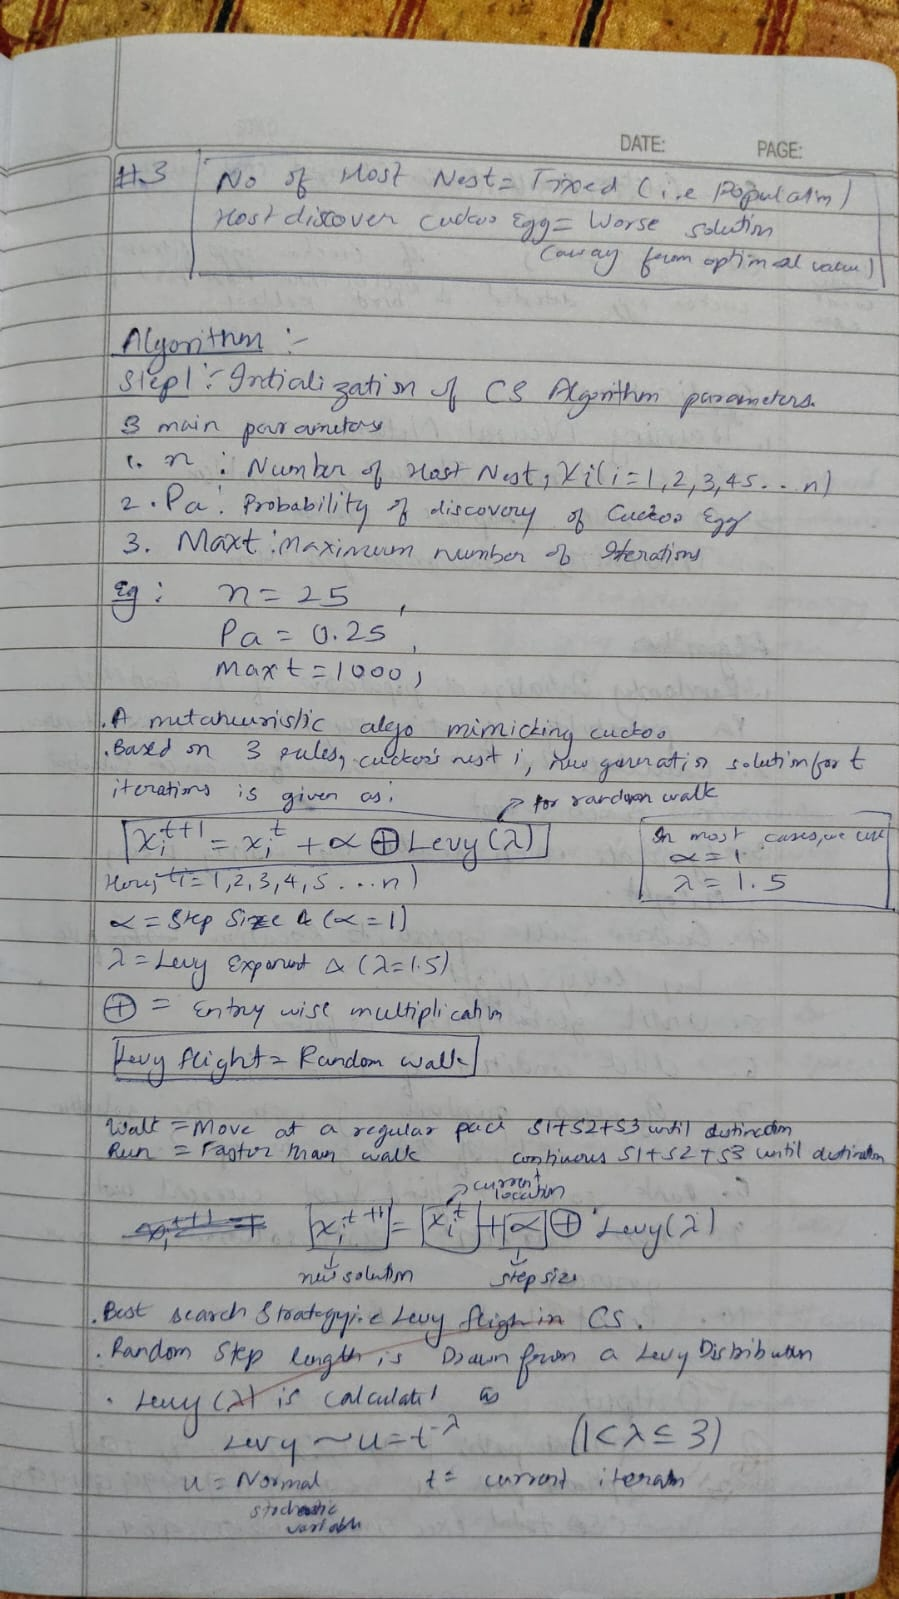 DATE: PAGE:
#.3 No of Host Nest = Fixed (i.e Population)
Host discover cuckoo Egg = Worse solution
(away from optimal value)
Algorithm :-
Step1 :- Intialization of CS Algorithm parameters.
3 main parameters
1. n : Number of Host Nest, Xi(i=1,2,3,4,5...n)
2. Pa : Probability of discovery of Cuckoo Egg
3. Maxt : Maximum number of Iterations
Eg : n = 25 ,
Pa = 0.25 ,
Maxt = 1000 ;
. A metaheuristic algo mimicking cuckoo
. Based on 3 rules, cuckoo's nest i, new generation solution for t
iterations is given as; for random walk
xᵢᵗ⁺¹ = xᵢᵗ + α ⊕ Levy(λ)
In most cases, we use
α = 1
λ = 1.5
Here, (i=1,2,3,4,5...n)
α = Step Size & (α=1)
λ = Levy Exponent & (λ=1.5)
⊕ = Entry wise multiplication
Levy flight = Random walk
Walk = Move at a regular pace S1+S2+S3 until destination
Run = Faster than walk continuous S1+S2+S3 until destination
current location
xᵢᵗ⁺¹ = xᵢᵗ + α ⊕ Levy(λ)
new solution step size
. Best search Strategy i.e Levy fligh in CS.
. Random Step length is Drawn from a Levy Distribution
. Levy (λ) is calculated as
Levy ~ u = t⁻λ (1<λ≤3)
u = Normal t = current iteration
stochastic
variable